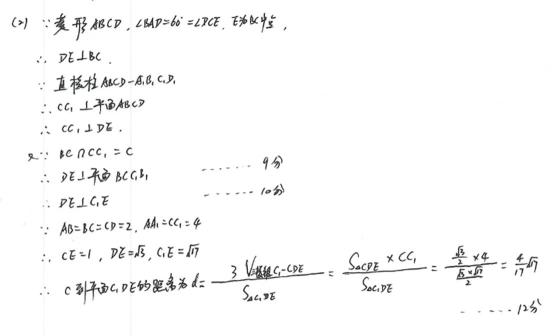 (2) ∵ 菱形ABCD, ∠BAD=60°=∠DCE, E为BC中点,
∴ DE⊥BC.
∵ 直棱柱ABCD-A₁B₁C₁D₁
∴ CC₁⊥平面ABCD
∴ CC₁⊥DE.
又∵ BC∩CC₁=C
∴ DE⊥平面BCC₁B₁ ...... 9分
∴ DE⊥C₁E ...... 10分
∵ AB=BC=CD=2, AA₁=CC₁=4
∴ CE=1, DE=√3, C₁E=√17
∴ C到平面C₁DE的距离为d= 3V三棱锥C₁-CDE / S△C₁DE = S△CDE × CC₁ / S△C₁DE = (√3/2 ×4) / (√3×√17/2) = 4/17 √17
...... 12分